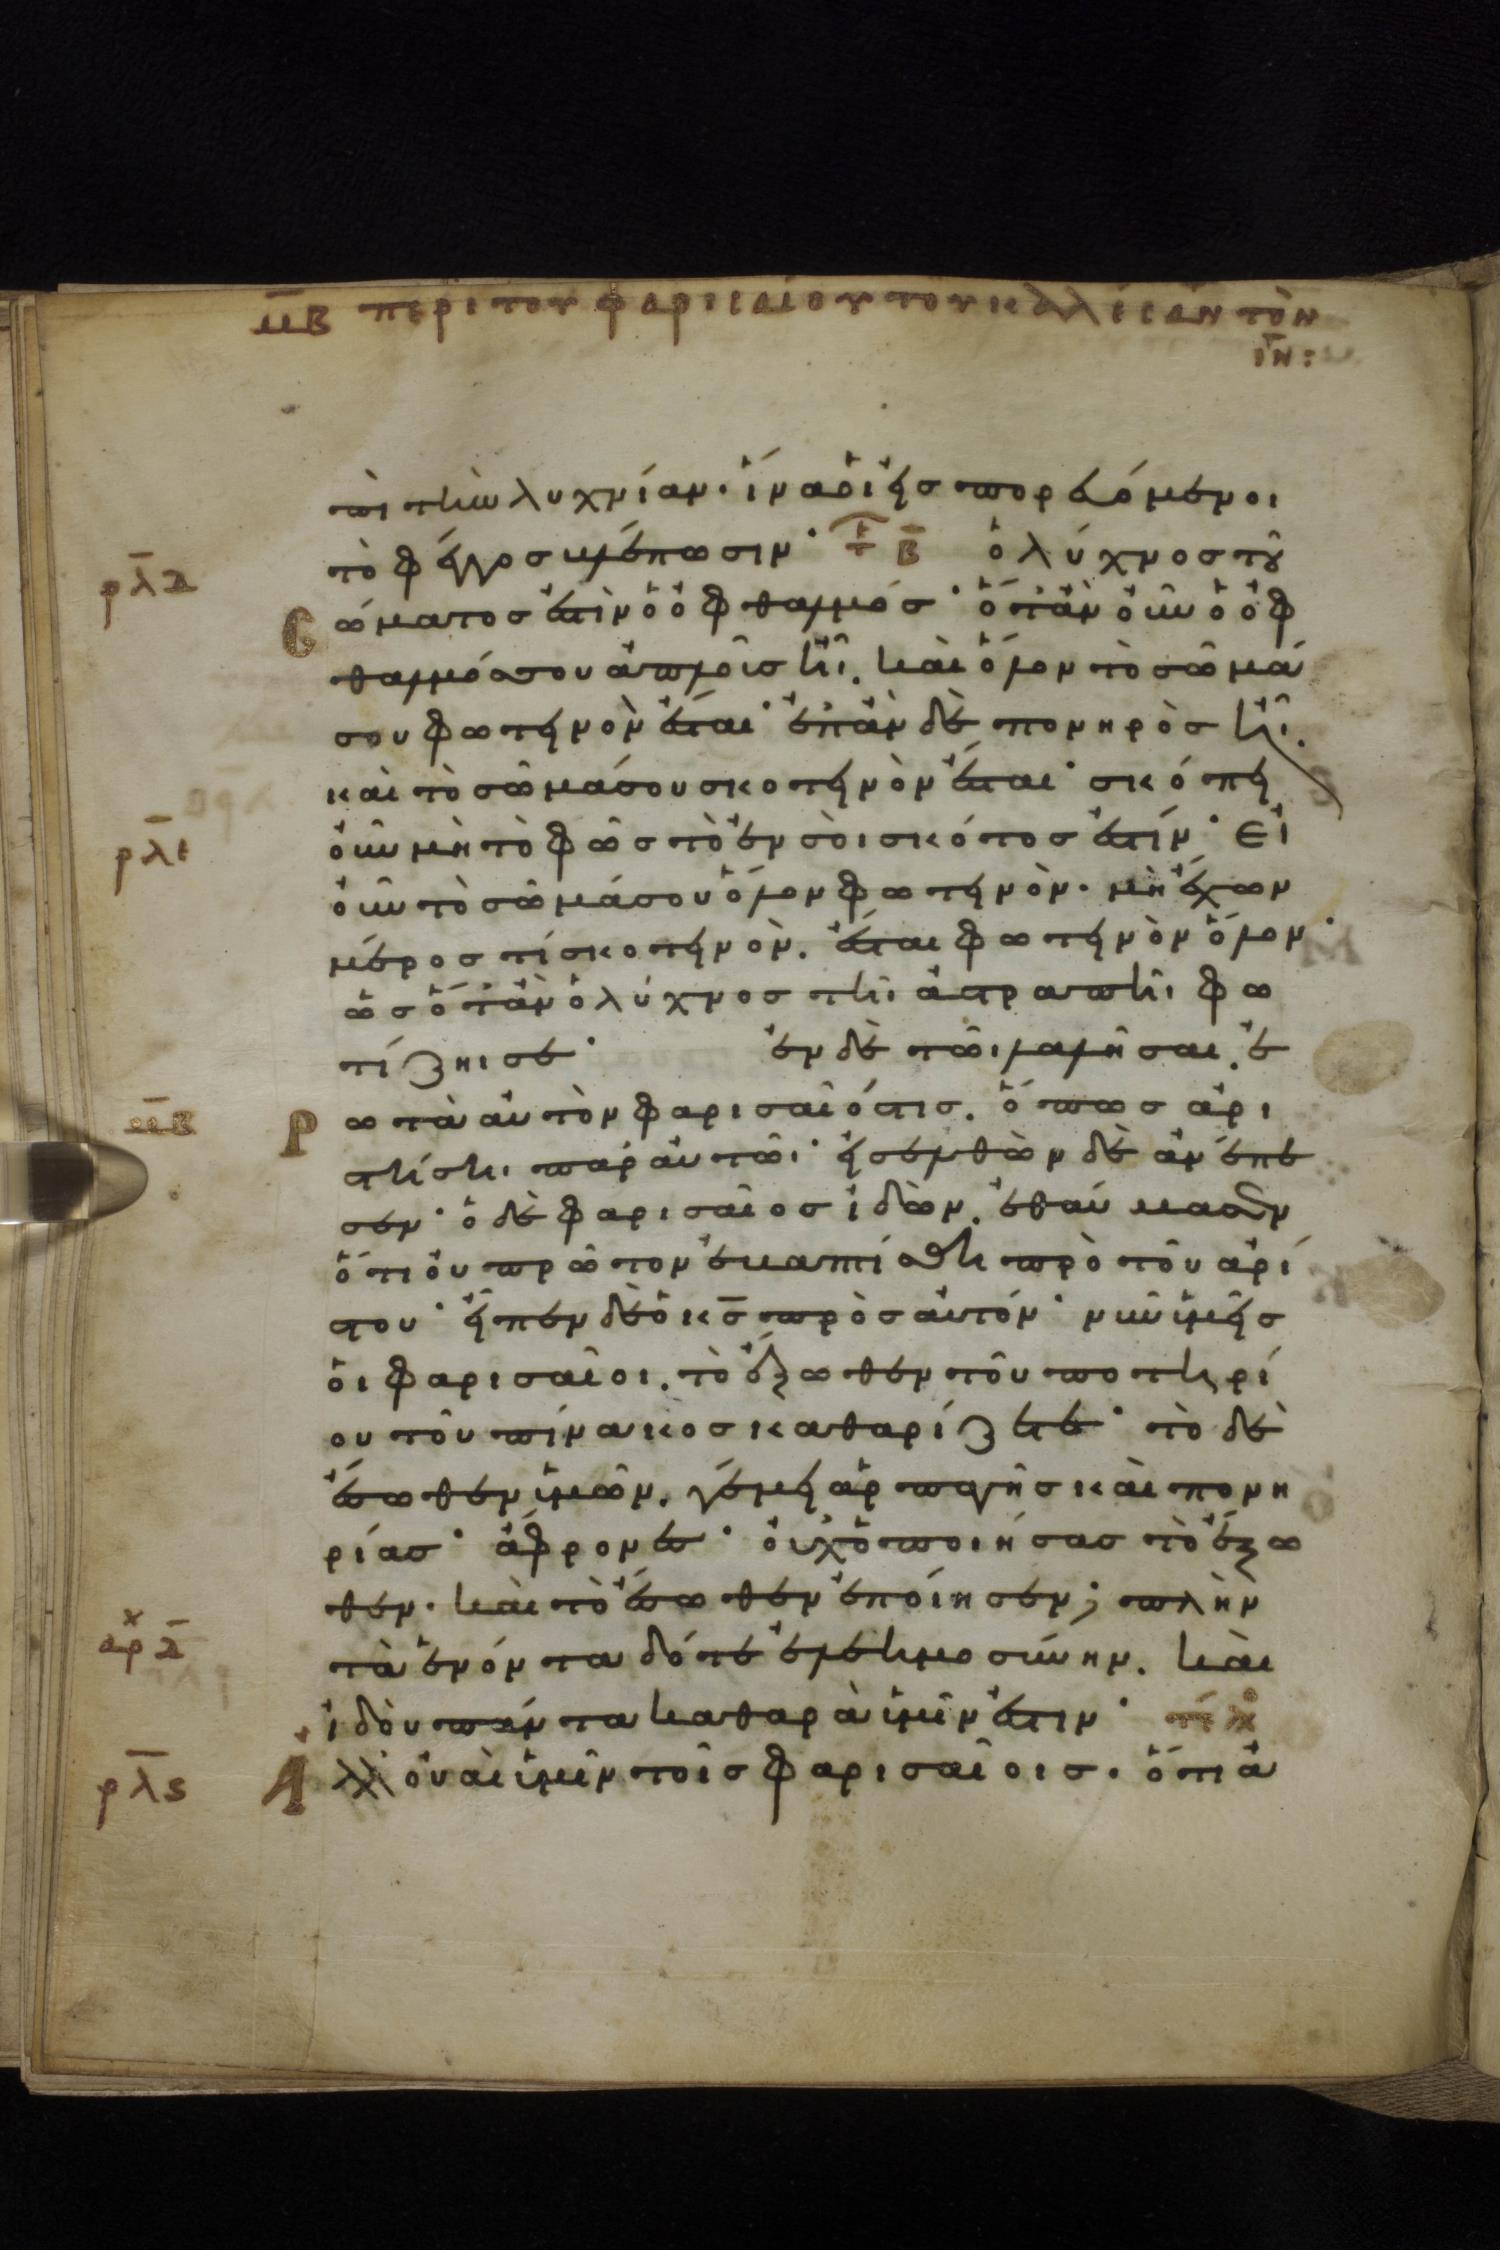 μβ περι του φαρισαίου του καλέσαντος τὸν
ιν:
πὶ τὴν λυχνίαν· ἵνα οἱ εἰσπορευόμενοι
ρλδ τὸ φέγγος βλέπωσιν· τ β ὁ λύχνος τοῦ
Cώματος ἐστὶν ὁ ὀφθαλμός· ὅταν οὖν ὁ ὀφ
θαλμός σου ἁπλοῦς ἦι. καὶ ὅλον τὸ σῶμά
σου φωτεινὸν ἔσται· ἐπὰν δὲ πονηρὸς ἦι.
καὶ τὸ σῶμά σου σκοτεινὸν ἔσται· σκόπει
ρλε οὖν μὴ τὸ φῶς τὸ ἐν σοὶ σκότος ἐστίν· Εἰ
οὖν τὸ σῶμά σου ὅλον φωτεινὸν. μὴ ἔχων
μέρος τί σκοτεινὸν. ἔσται φωτεινὸν ὅλον·
ὡς ὅταν ὁ λύχνος τῆι ἀστραπῆι φω
τίζηι σε· ἐν δὲ τῶι λαλῆσαι. ἐ
μβ Ρωτὰ αὐτὸν φαρισαῖός τις. ὅπως ἀρι
στήση παρ αὐτῶι· εἰσελθὼν δὲ ἀνέπε
σεν· ὁ δὲ φαρισαῖος ἰδὼν. ἐθαύμασεν
ὅτι οὐ πρῶτον ἐβαπτίσθη πρὸ τοῦ ἀρί
στου· εἶπεν δὲ ὁ κς πρὸς αὐτόν· νῦν ὑμεῖς
οἱ φαρισαῖοι. τὸ ἔξωθεν τοῦ ποτηρί
ου τοῦ πίνακος καθαρίζετε· τὸ δὲ
ἔσωθεν ὑμῶν. γέμει ἁρπαγῆς καὶ πονη
ρίας· ἄφρονες· οὐχ ὁ ποιήσας τὸ ἔξω
θεν. καὶ τὸ ἔσωθεν ἐποίησεν; πλὴν
αρχ δ τὰ ἐνόντα δότε ἐλεημοσύνην. καὶ
ἰδοὺ πάντα καθαρὰ ὑμῖν ἐστιν· τέλ
ρλς Ἀλλ οὐαὶ ὑμῖν τοῖς φαρισαίοις. ὅτι ἀ